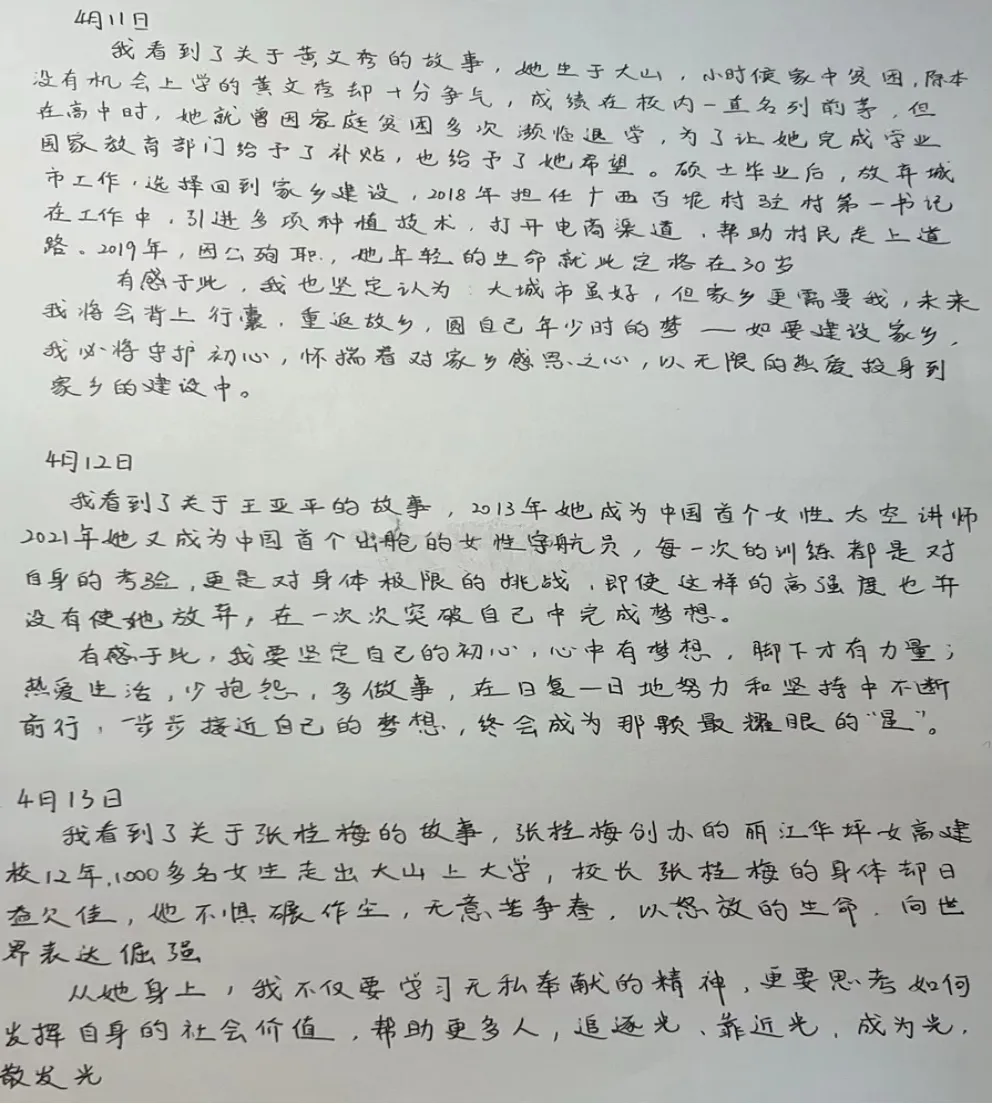 4月11日
我看到了关于黄文秀的故事，她生于大山，小时候家中贫困，原本
没有机会上学的黄文秀却十分争气，成绩在校内一直名列前茅，但
在高中时，她就曾因家庭贫困多次濒临退学，为了让她完成学业
国家教育部门给予了补贴，也给予了她希望。硕士毕业后，放弃城
市工作，选择回到家乡建设，2018年担任广西百坭村驻村第一书记
在工作中，引进多项种植技术，打开电商渠道，帮助村民走上道
路。2019年，因公殉职，她年轻的生命就此定格在30岁
有感于此，我也坚定认为：大城市虽好，但家乡更需要我，未来
我将会背上行囊，重返故乡，圆自己年少时的梦——如要建设家乡，
我必将守护初心，怀揣着对家乡感恩之心，以无限的热爱投身到
家乡的建设中。
4月12日
我看到了关于王亚平的故事，2013年她成为中国首个女性太空讲师
2021年她又成为中国首个出舱的女性宇航员，每一次的训练都是对
自身的考验，更是对身体极限的挑战，即使这样的高强度也并
没有使她放弃，在一次次突破自己中完成梦想。
有感于此，我要坚定自己的初心，心中有梦想，脚下才有力量；
热爱生活，少抱怨，多做事，在日复一日地努力和坚持中不断
前行，一步步接近自己的梦想，终会成为那颗最耀眼的“星”。
4月13日
我看到了关于张桂梅的故事，张桂梅创办的丽江华坪女高建
校12年，1000多名女生走出大山上大学，校长张桂梅的身体却日
益欠佳，她不惧碾作尘，无意苦争春，以怒放的生命，向世
界表达倔强
从她身上，我不仅要学习无私奉献的精神，更要思考如何
发挥自身的社会价值，帮助更多人，追逐光、靠近光，成为光，
散发光